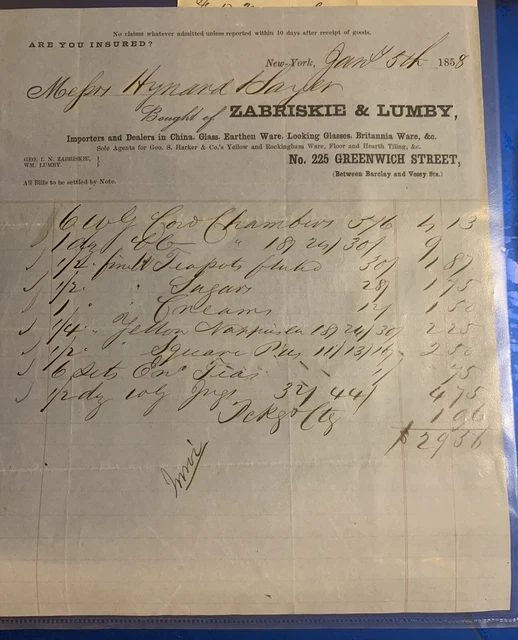 No claims whatever admitted unless reported within 10 days after receipt of goods.
ARE YOU INSURED?
New-York, Jany 5th 1858
Messrs Hynard
Bought of ZABRISKIE & LUMBY,
Importers and Dealers in China, Glass, Earthen Ware, Looking Glasses, Britannia Ware, &c.
Sole Agents for Geo. S. Harker & Co.'s Yellow and Rockingham Ware, Floor and Hearth Tiling, &c.
GEO. I. N. ZABRISKIE,
WM. LUMBY.
No. 225 GREENWICH STREET,
(Between Barclay and Vesey Sts.)
All Bills to be settled by Note.
6 WG Cov'd Chambers 5/6 4 13
1 dz CC " 18/ 24/ 30/ 9
1/2 " Teapots fluted 30/ 1 87
1/2 " Sugars 28/ 1 75
1 " Creams 12/ 1 50
1/4 " Yellow Nappies 18/ 24/ 30/ 2 25
1/2 " Square 11/ 13/ 16/ 2 50
6 Sets Teas 1/ 75
1/2 dz WG Jugs 32/ 44/ 4 75
Pckg Ctg 1 06
$ 29 56